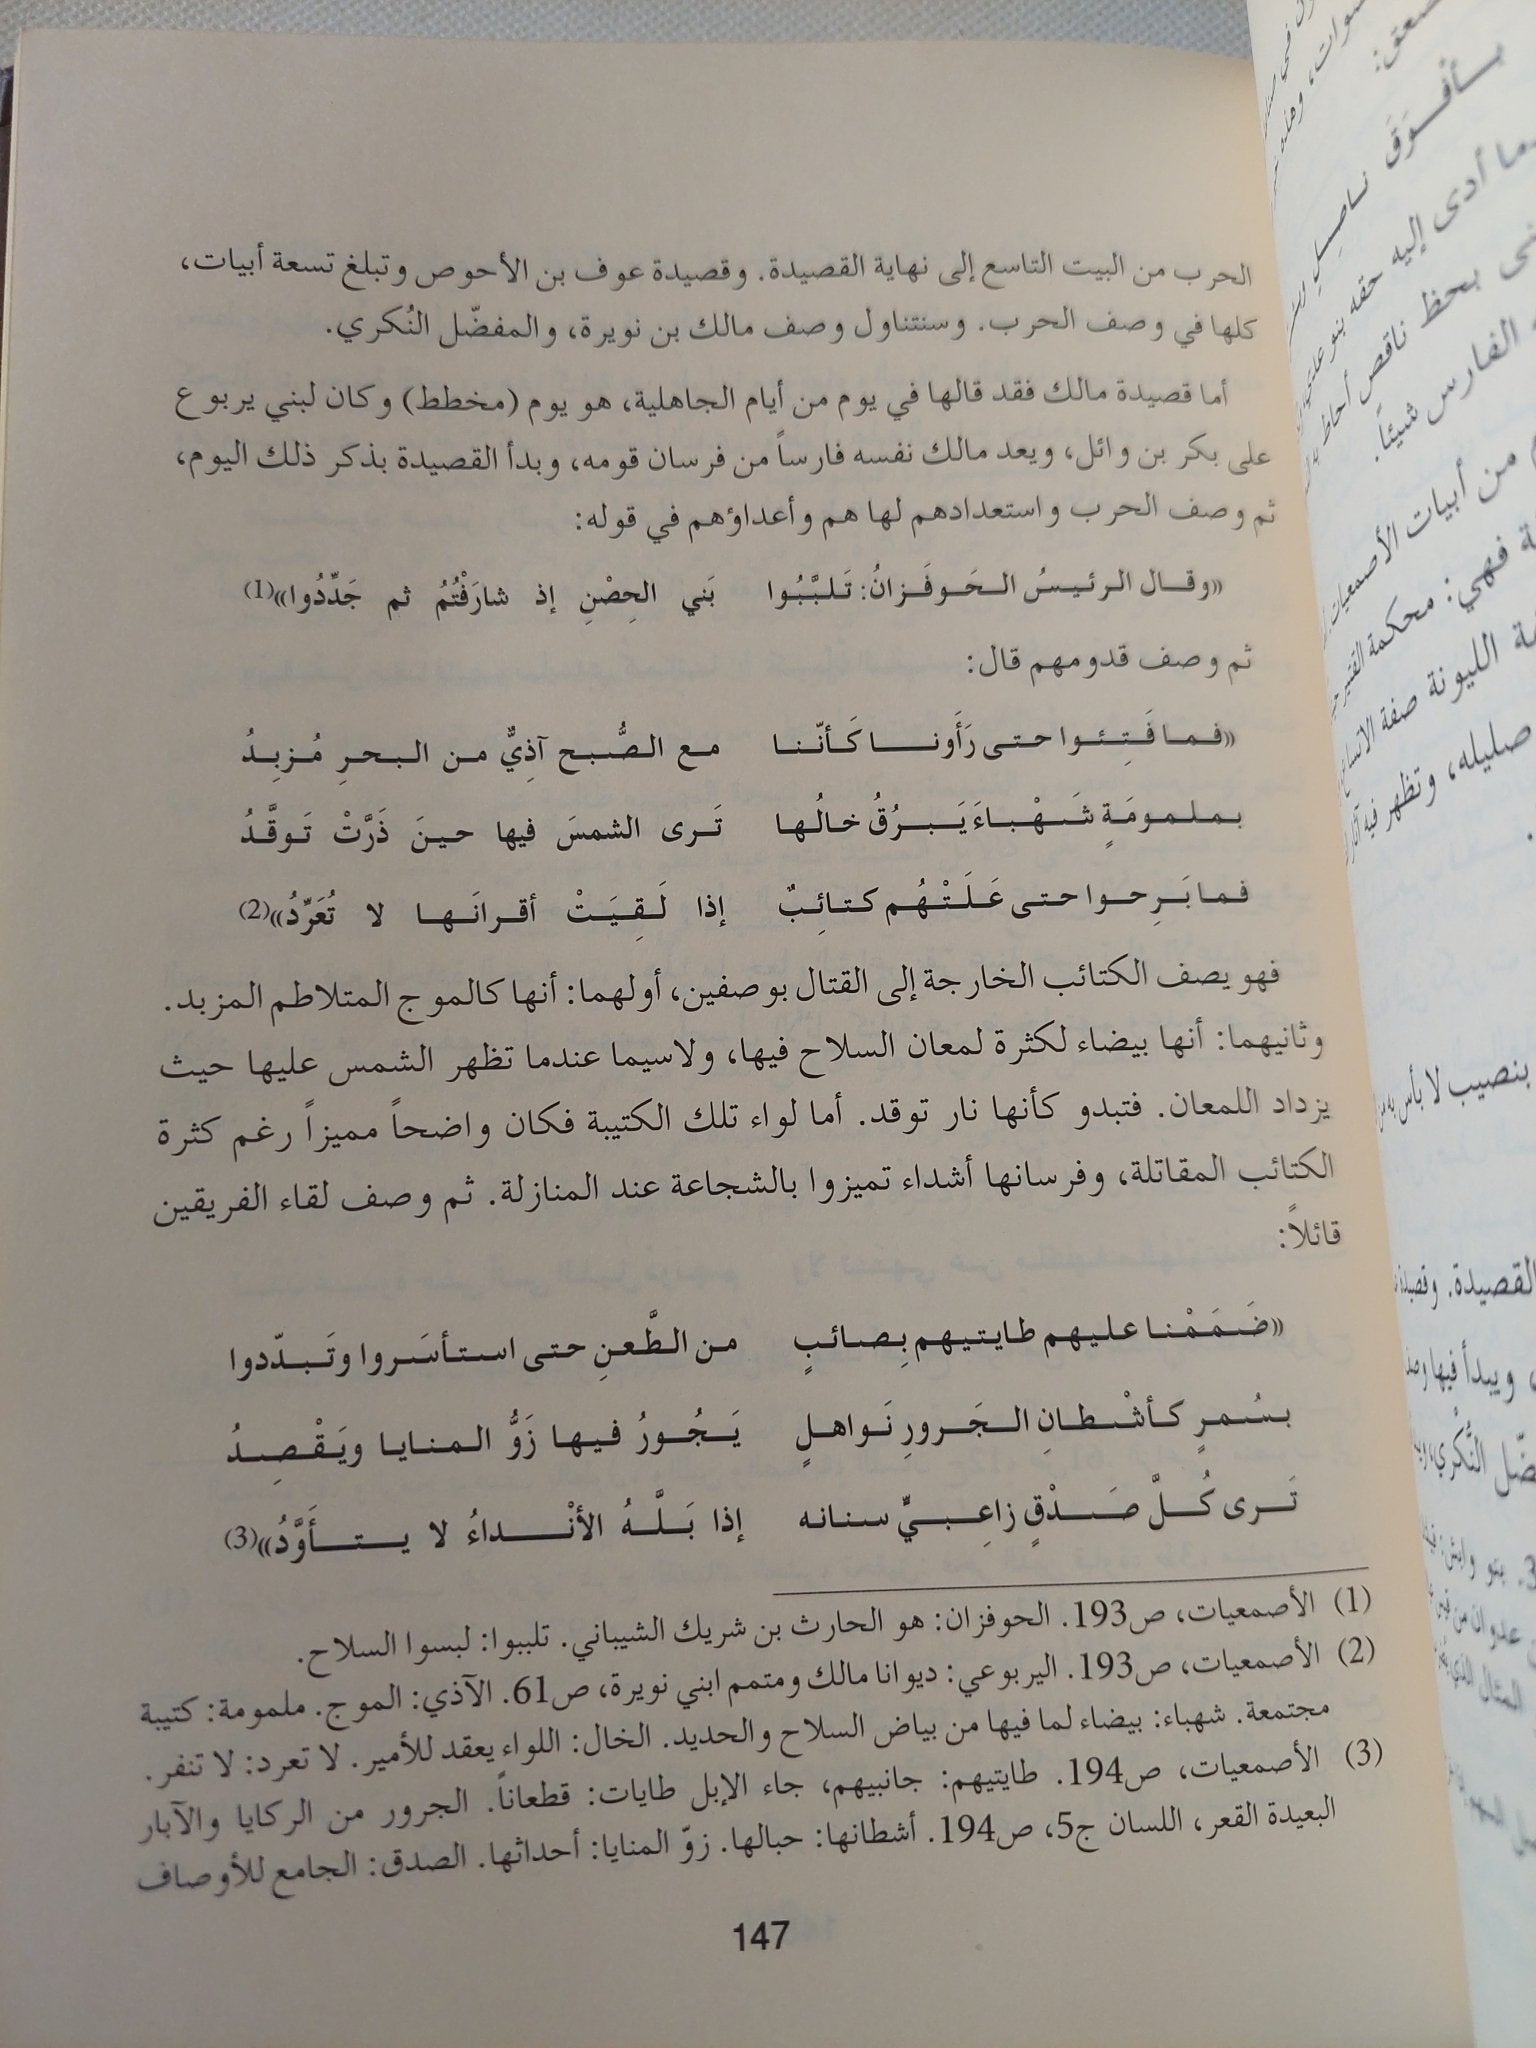 الحرب من البيت التاسع إلى نهاية القصيدة. وقصيدة عوف بن الأحوص وتبلغ تسعة أبيات،
كلها في وصف الحرب. وسنتناول وصف مالك بن نويرة، والمفضّل النُكري.
أما قصيدة مالك فقد قالها في يوم من أيام الجاهلية، هو يوم (مخطط) وكان لبني يربوع
على بكر بن وائل، ويعد مالك نفسه فارساً من فرسان قومه، وبدأ القصيدة بذكر ذلك اليوم،
ثم وصف الحرب واستعدادهم لها هم وأعداؤهم في قوله:
«وقال الرئيسُ الحَوفَزانُ: تَلبَّبُوا بَني الحِصْنِ إذ شارَفْتُمُ ثم جَدِّدُوا»(1)
ثم وصف قدومهم قال:
«فما فَتِئوا حتى رَأَونا كَأنّنا مع الصُّبح آذِيٌّ من البحرِ مُزبِدُ
بملمومَةٍ شَهْباءَ يَبرُقُ خالُها تَرى الشمسَ فيها حينَ ذَرَّتْ تَوقَّدُ
فما بَرِحوا حتى عَلَتْهُم كتائِبٌ إذا لَقِيَتْ أقرانَها لا تُعَرِّدُ»(2)
فهو يصف الكتائب الخارجة إلى القتال بوصفين، أولهما: أنها كالموج المتلاطم المزبد.
وثانيهما: أنها بيضاء لكثرة لمعان السلاح فيها، ولاسيما عندما تظهر الشمس عليها حيث
يزداد اللمعان. فتبدو كأنها نار توقد. أما لواء تلك الكتيبة فكان واضحاً مميزاً رغم كثرة
الكتائب المقاتلة، وفرسانها أشداء تميزوا بالشجاعة عند المنازلة. ثم وصف لقاء الفريقين
قائلاً:
«ضَمَمْنا عليهم طايتيهم بِصائبٍ من الطَّعنِ حتى استأسَروا وتَبدّدوا
بسُمرٍ كأشْطانِ الجَرورِ نَواهلٍ يَجُورُ فيها زَوُّ المنايا ويَقْصِدُ
تَرى كُلَّ صَدْقٍ زاعِبيٍّ سنانه إذا بَلَّهُ الأنْداءُ لا يتأَوَّدُ»(3)
(1) الأصمعيات، ص193. الحوفزان: هو الحارث بن شريك الشيباني. تلببوا: لبسوا السلاح.
(2) الأصمعيات، ص193. اليربوعي: ديوانا مالك ومتمم ابني نويرة، ص61. الآذي: الموج. ملمومة: كتيبة
مجتمعة. شهباء: بيضاء لما فيها من بياض السلاح والحديد. الخال: اللواء يعقد للأمير. لا تعرد: لا تنفر.
(3) الأصمعيات، ص194. طايتيهم: جانبيهم، جاء الإبل طايات: قطعاناً. الجرور من الركايا والآبار
البعيدة القعر، اللسان ج5، ص194. أشطانها: حبالها. زوّ المنايا: أحداثها. الصدق: الجامع للأوصاف
147
بأفْوَقَ ناصِلِ
أدى إليه حقه بنو
بحظ ناقص أحاط
الفارس شيئاً.
من أبيات الأصمعيات
فهي: محكمة
الليونة صفة
صليله، وتظهر فيه
بنصيب لا بأس به من
القصيدة. وقصيدة
ويبدأ فيها
النُّكْري،